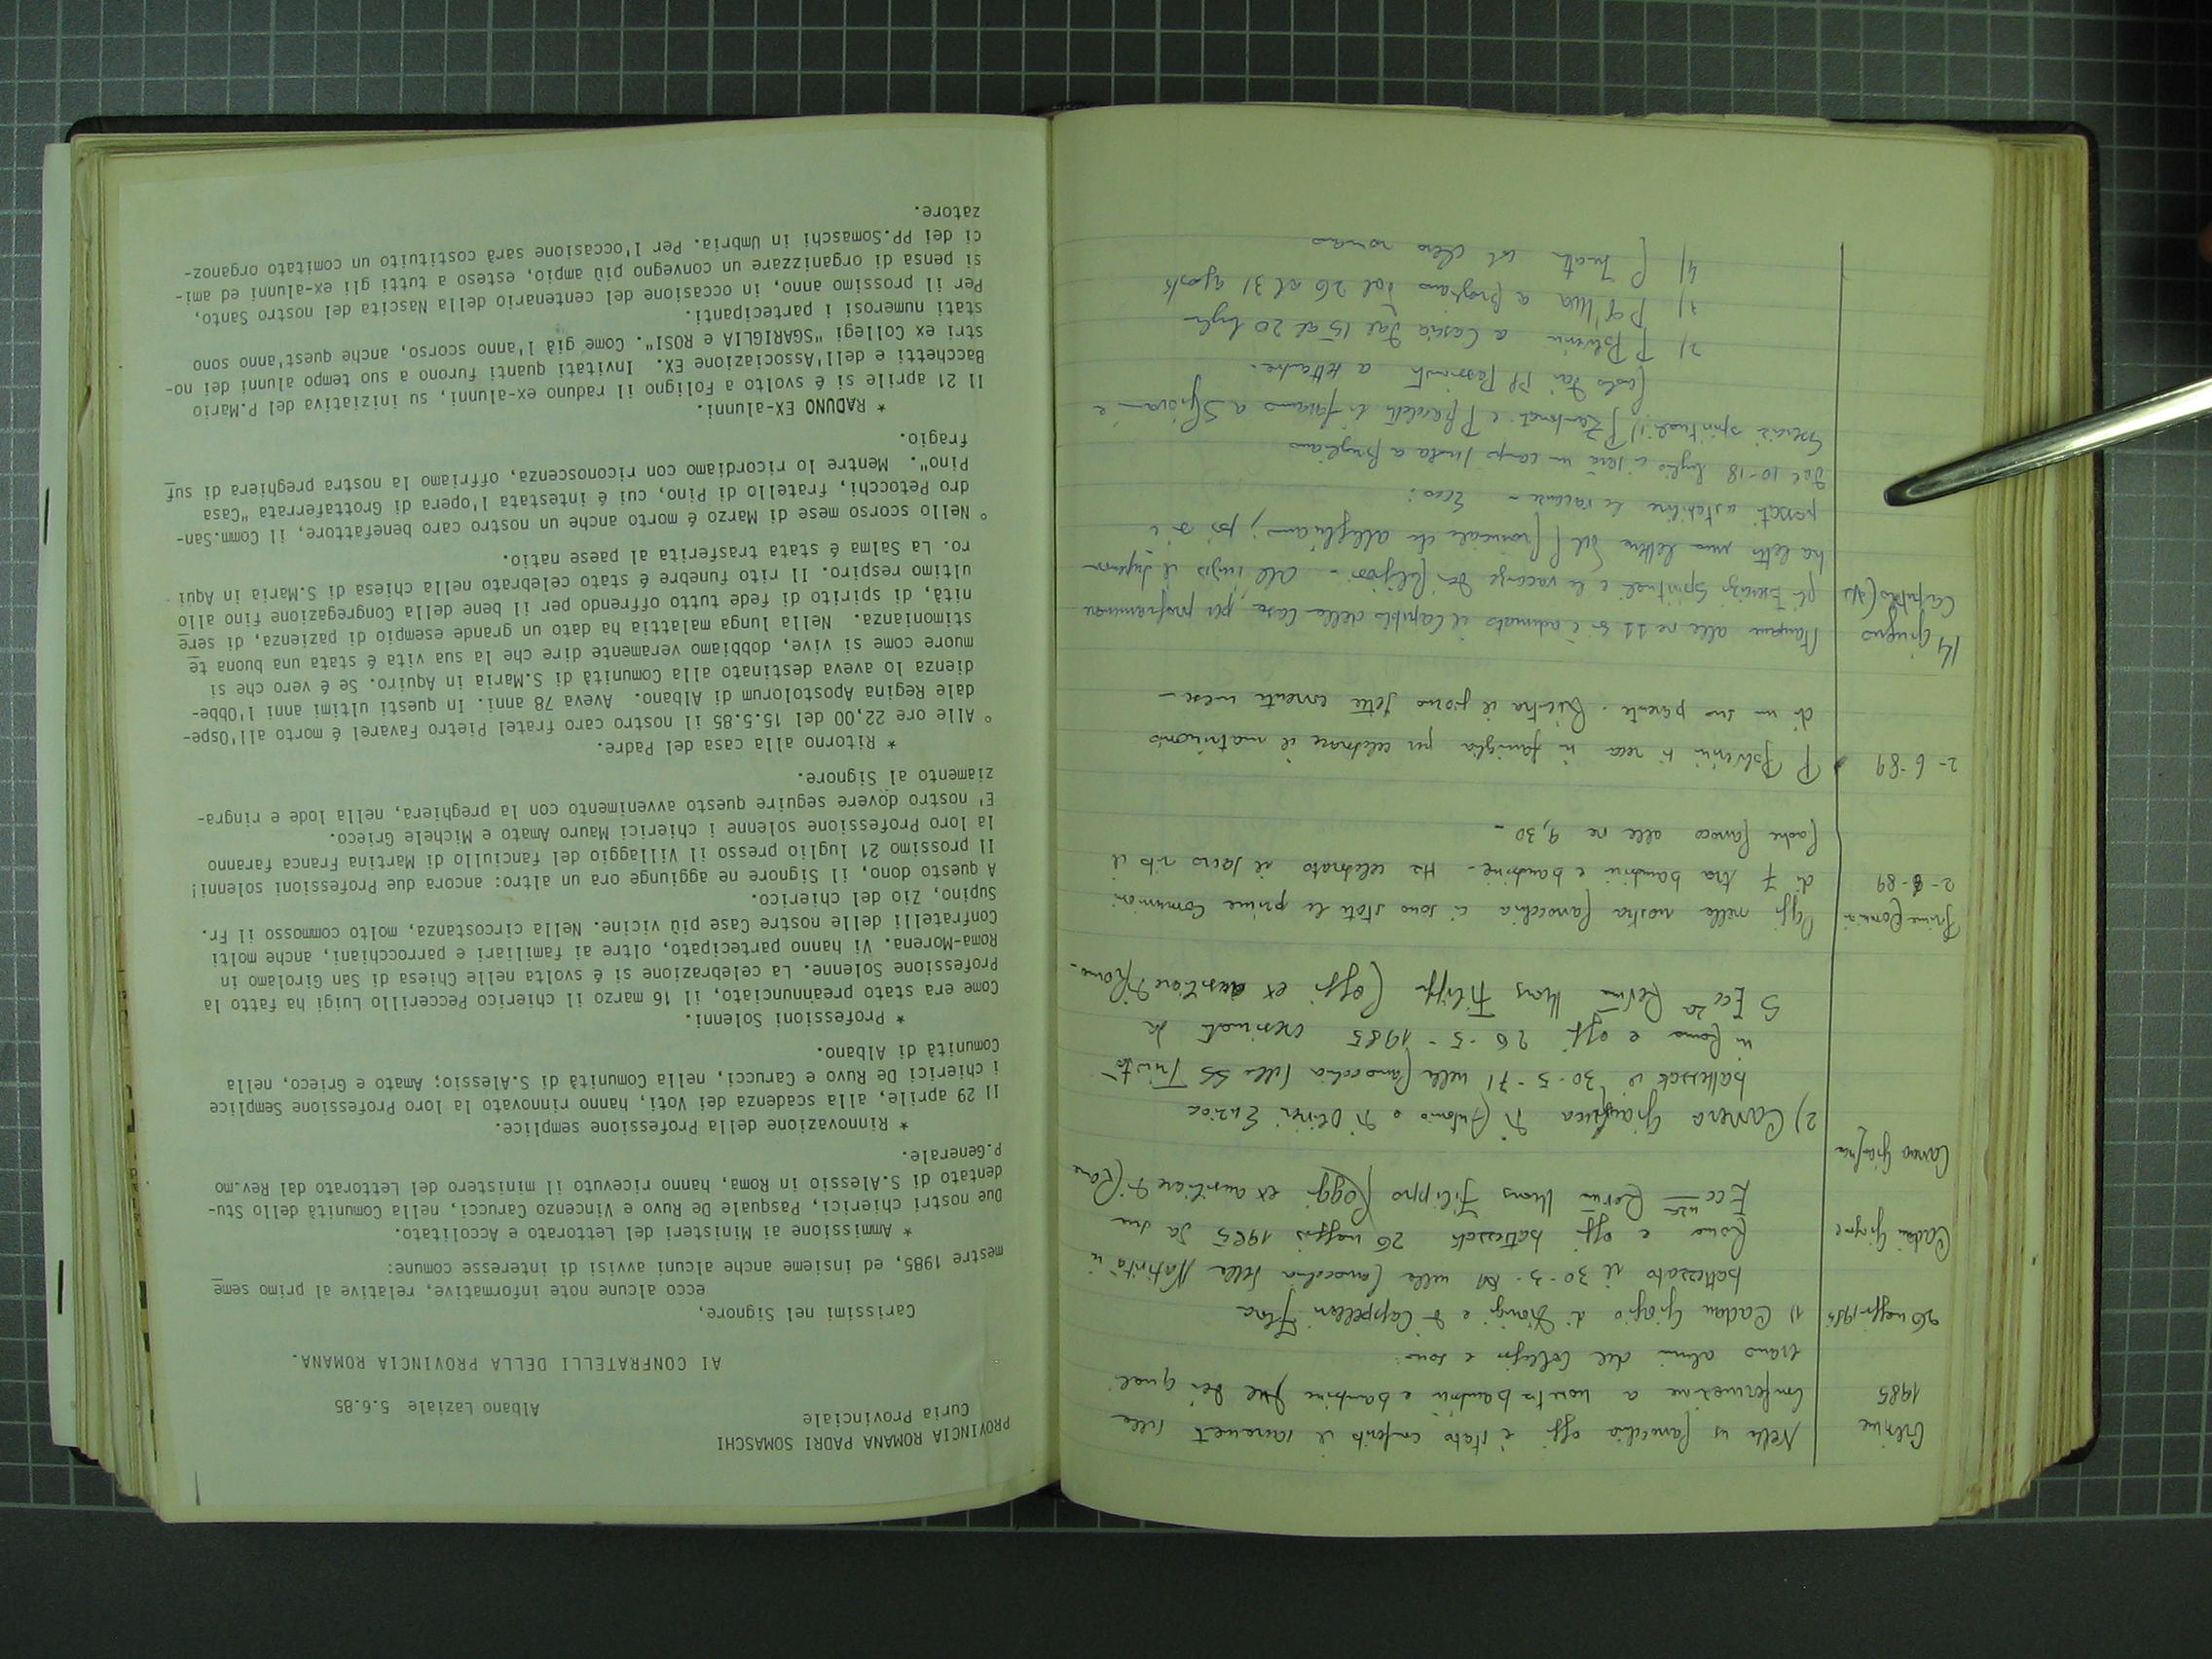 Cresime
1985
Nella ns Parrocchia oggi è stato conferito il sacramento della
Confermazione a novanta bambini e bambine dei quali
erano alunni del Collegio e sono:
26 maggio 1985
1) Cadau Giorgio di Dionigi e di Cappellari Flora
battezzato il 30-3- nella Parrocchia della Natività in
Roma e oggi 26 maggio 1985 da sua
Ecc.za Rev.ma Mons Filippo Poggi ex ausiliare di Roma
Cadau Giorgio
Carrera Gianluca
2) Carrera Gianluca di Antonio e di Olivieri Enrica
battezzato il 30-5-71 nella Parrocchia della SS Trinità
in Roma e oggi 26-5-1985 cresimato da
S Ecc.za Rev.ma Mons Filippo Poggi ex ausiliare di Roma.
Prime Comuni
2-6-89
Oggi nella nostra Parrocchia ci sono state le prime Comunioni
di 7 tra bambini e bambine. Ha celebrato il sacro rito il
Padre Parroco alle re 9,30 -
2-6-89
P Polverini si reca in famiglia per celebrare il matrimonio
di un suo parente. Rientra il giorno sette corrente mese -
14 giugno
Capitolo
Stamane alle re 11 si è adunato il Capitolo della Casa per programmare
gli Esercizi Spirituali e le vacanze dei Religiosi. All'inizio il Superiore
ha letto una lettera del P Provinciale che alleghiamo; poi si è
passati a stabilire le vacanze - Ecco:
Dal 10-18 luglio ci sarà un campo scuola a Brogliano
Esercizi spirituali: 1) P Zambonati e P Pacelli li faranno a S Giovanni e
Paolo dai PP Passionisti a settembre.
2) P Polverini a Cascia dal 15 al 20 luglio
3) P dal 26 al 31 agosto
4) P col clero romano
PROVINCIA ROMANA PADRI SOMASCHI
Curia Provinciale
Albano Laziale 5.6.85
AI CONFRATELLI DELLA PROVINCIA ROMANA.
Carissimi nel Signore,
ecco alcune note informative, relative al primo seme
mestre 1985, ed insieme anche alcuni avvisi di interesse comune:
* Ammissione ai Ministeri del Lettorato e Accolitato.
Due nostri chierici, Pasquale De Ruvo e Vincenzo Carucci, nella Comunità dello Stu-
dentato di S.Alessio in Roma, hanno ricevuto il ministero del Lettorato dal Rev.mo
P.Generale.
* Rinnovazione della Professione semplice.
Il 29 aprile, alla scadenza dei Voti, hanno rinnovato la loro Professione Semplice
i chierici De Ruvo e Carucci, nella Comunità di S.Alessio; Amato e Grieco, nella
Comunità di Albano.
* Professioni Solenni.
Come era stato preannunciato, il 16 marzo il chierico Peccerillo Luigi ha fatto la
Professione Solenne. La celebrazione si é svolta nelle Chiesa di San Girolamo in
Roma-Morena. Vi hanno partecipato, oltre ai familiari e parrocchiani, anche molti
Confratelli delle nostre Case più vicine. Nella circostanza, molto commosso il Fr.
Supino, Zio del chierico.
A questo dono, il Signore ne aggiunge ora un altro: ancora due Professioni solenni!
Il prossimo 21 luglio presso il Villaggio del fanciullo di Martina Franca faranno
la loro Professione solenne i chierici Mauro Amato e Michele Grieco.
E' nostro dovere seguire questo avvenimento con la preghiera, nella lode e ringra-
ziamento al Signore.
* Ritorno alla casa del Padre.
° Alle ore 22,00 del 15.5.85 il nostro caro fratel Pietro Favarel é morto all'Ospe-
dale Regina Apostolorum di Albano. Aveva 78 anni. In questi ultimi anni l'Obbe-
dienza lo aveva destinato alla Comunità di S.Maria in Aquiro. Se é vero che si
muore come si vive, dobbiamo veramente dire che la sua vita é stata una buona te
stimonianza. Nella lunga malattia ha dato un grande esempio di pazienza, di sere
nità, di spirito di fede tutto offrendo per il bene della Congregazione fino allo
ultimo respiro. Il rito funebre é stato celebrato nella chiesa di S.Maria in Aqui
ro. La Salma é stata trasferita al paese natio.
° Nello scorso mese di Marzo é morto anche un nostro caro benefattore, il Comm.San-
dro Petocchi, fratello di Pino, cui é intestata l'opera di Grottaferrata "Casa
Pino". Mentre lo ricordiamo con riconoscenza, offriamo la nostra preghiera di suf
fragio.
* RADUNO EX-alunni.
Il 21 aprile si é svolto a Foligno il raduno ex-alunni, su iniziativa del P.Mario
Bacchetti e dell'Associazione EX. Invitati quanti furono a suo tempo alunni dei no-
stri ex Collegi "SGARIGLIA e ROSI". Come già l'anno scorso, anche quest'anno sono
stati numerosi i partecipanti.
Per il prossimo anno, in occasione del centenario della Nascita del nostro Santo,
si pensa di organizzare un convegno più ampio, esteso a tutti gli ex-alunni ed ami-
ci dei PP.Somaschi in Umbria. Per l'occasione sarà costituito un comitato organoz-
zatore.